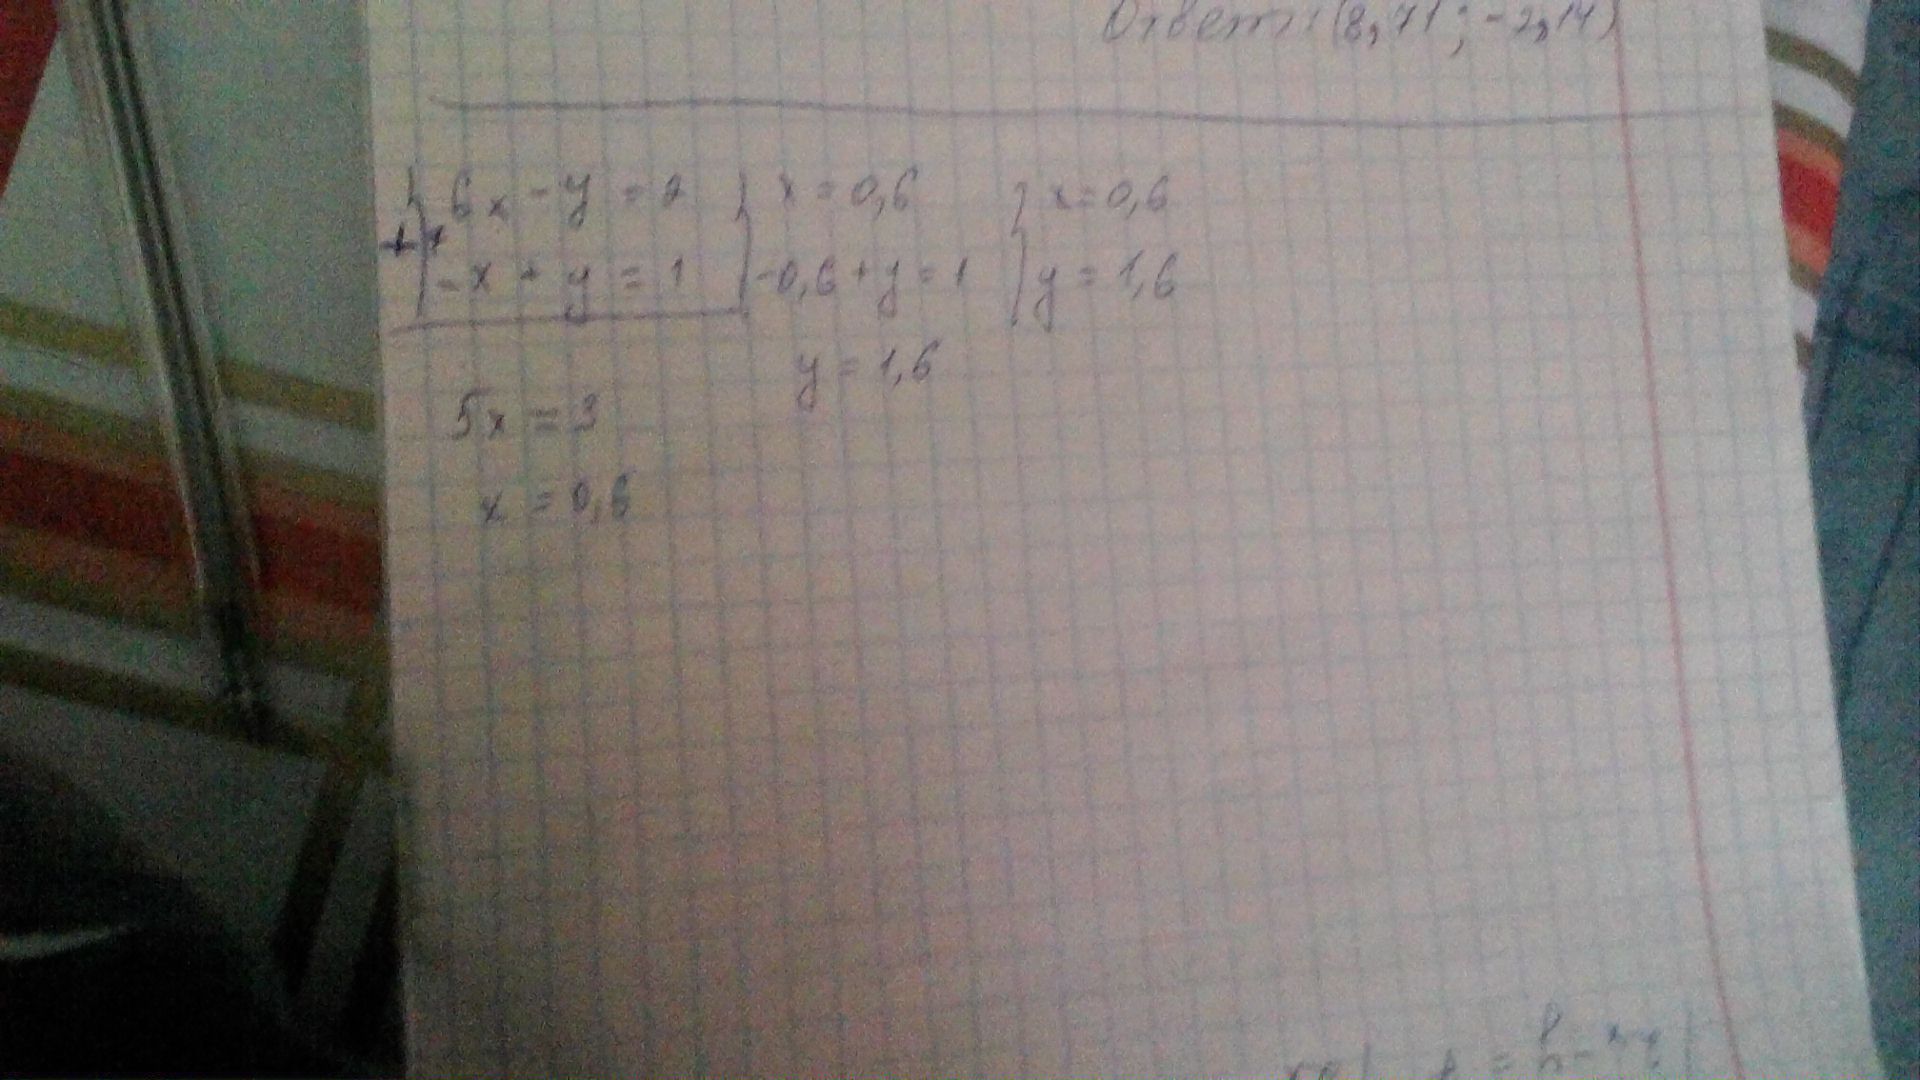 Ответ: (8,71; -2,14)
{ 6x - y = 2 { x = 0,6 { x = 0,6
+ { -x + y = 1 { -0,6 + y = 1 { y = 1,6
y = 1,6
5x = 3
x = 0,6